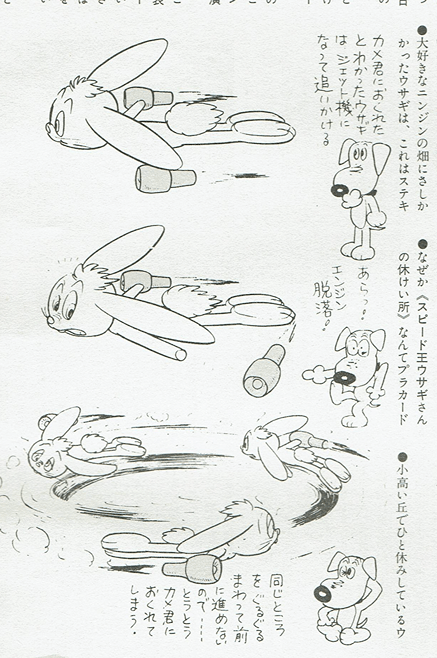 ●大好きなニンジンの畑にさしか
かったウサギは、これはステキ
カメ君におくれた
とわかったウサギ
はジェット機に
なって追いかける
●なぜか《スピード王ウサギさん
の休けい所》なんてプラカード
あらっ!
エンジン
脱落!
●小高い丘でひと休みしているウ
同じところ
をぐるぐる
まわって前
に進めない
ので……
とうとう
カメ君に
おくれて
しまう。